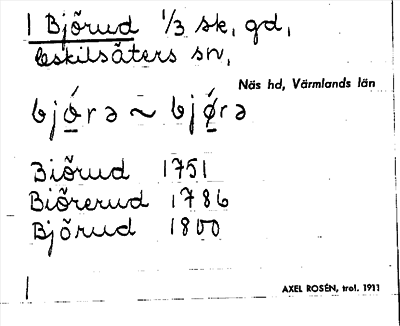 1 Bjõrud 1/3 sk, gd,
Eskilsäters sn,
Näs hd, Värmlands län
bjó̲rə ~ bjǿ̲rə
Biõrud 1751
Biõrerud 1786
Bjõrud 1800
AXEL ROSÉN, trol. 1911